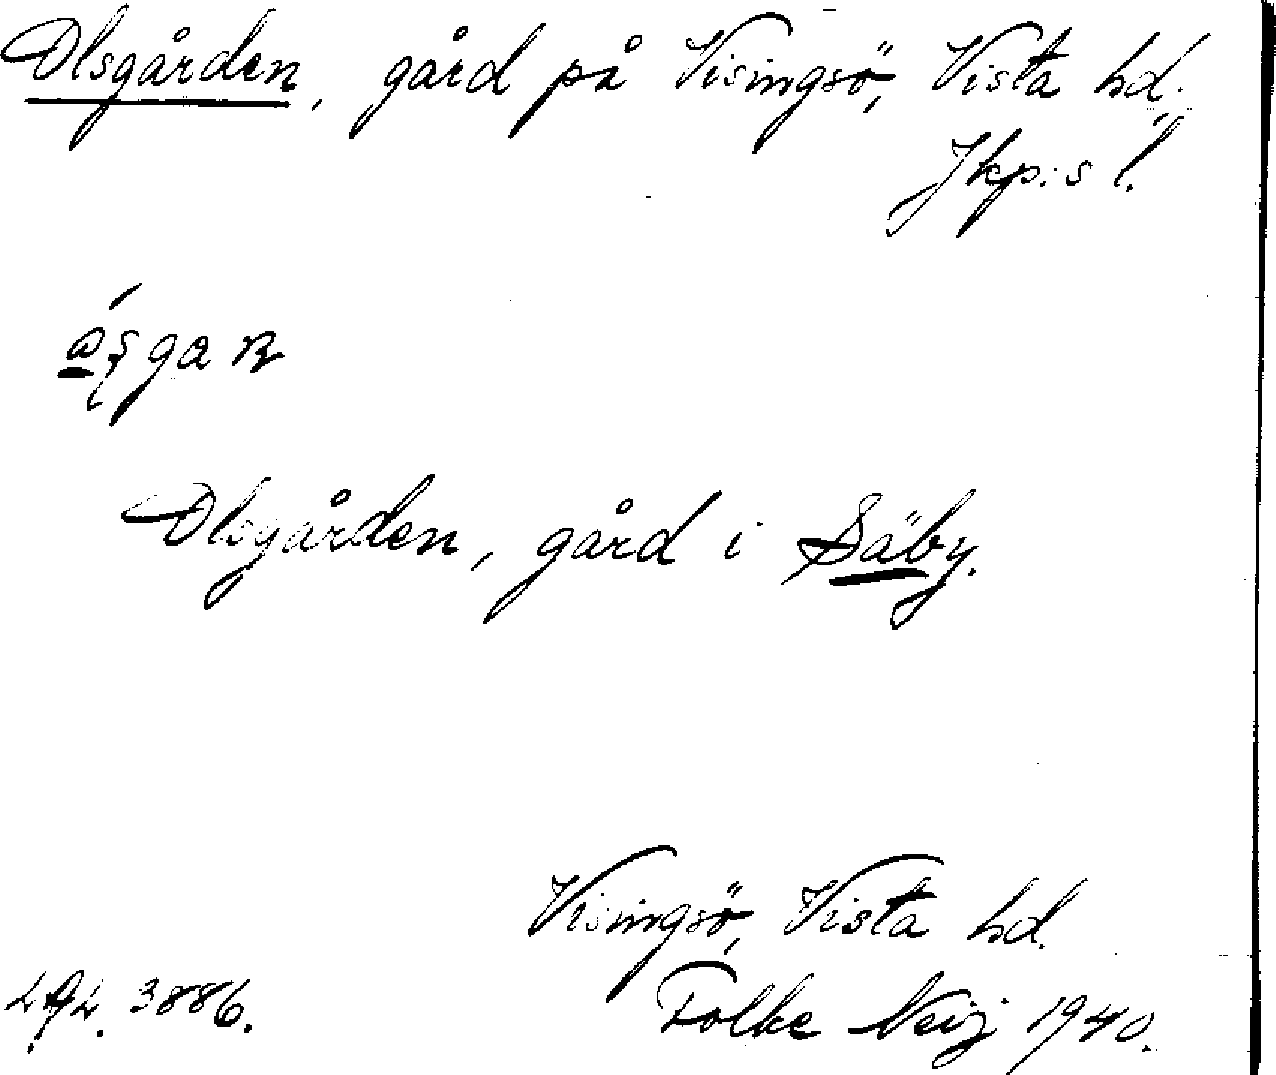 Olsgården, gård på Visingsö, Vista hd.,
Jkp:s l.
Olsgården, gård i Säby.
Visingsö, Vista hd.
3886. Folke Neij 1940.